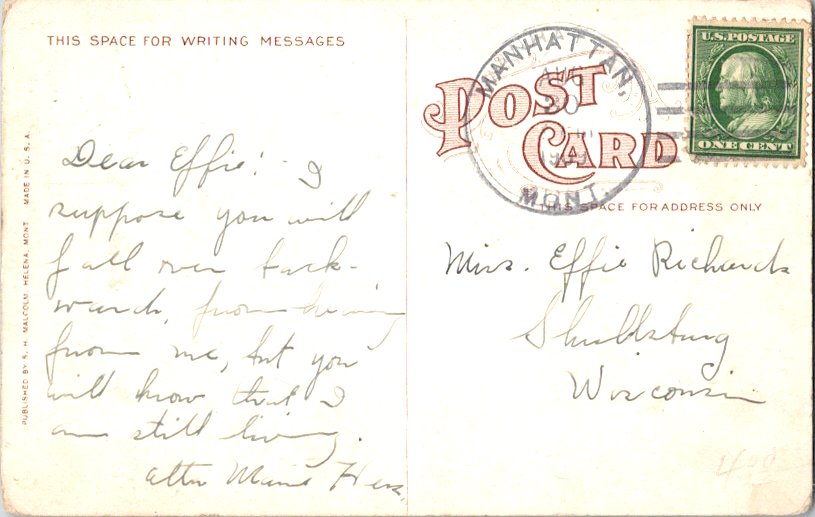 THIS SPACE FOR WRITING MESSAGES
Dear Effie! I
suppose you will
fall over back-
wards, from hearing
from me, but you
will know that I
am still living.
PUBLISHED BY S. H. MALCOLM, HELENA, MONT. MADE IN U.S.A.
POST
CARD
THIS SPACE FOR ADDRESS ONLY
MANHATTAN,
AUG
20
MONT.
U.S. POSTAGE
ONE CENT
Miss. Effie Richards
Shullsburg
Wisconsin